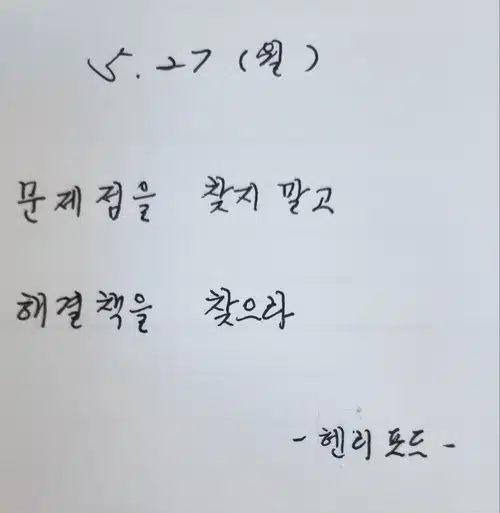 5. 27 (월)
문제점을 찾지 말고
해결책을 찾으라
- 헨리 포드 -